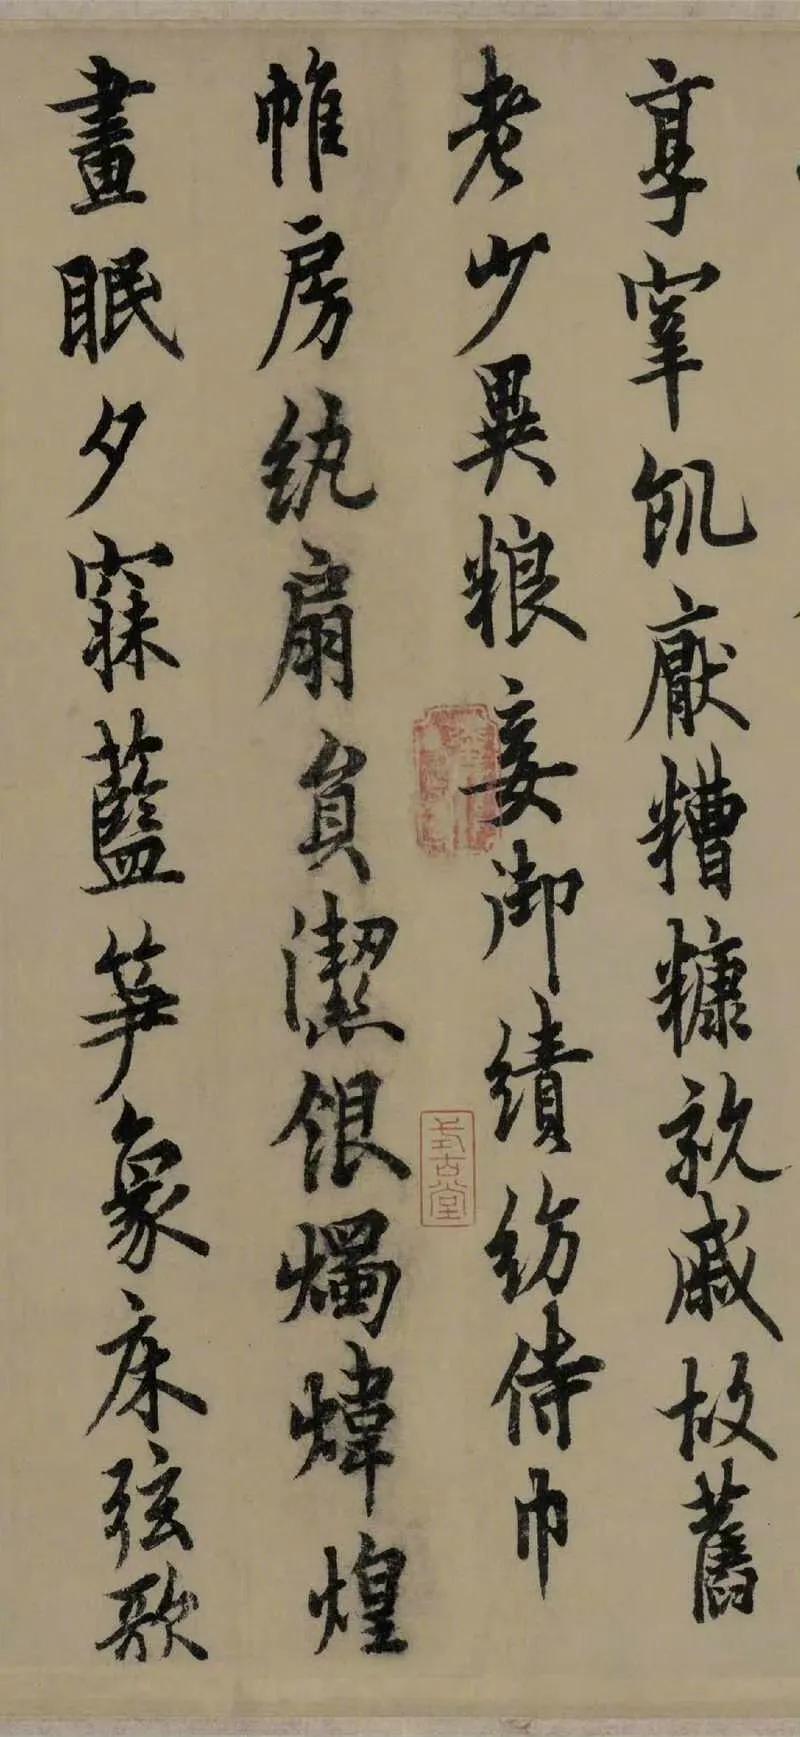 享宰飢厭糟糠親戚故舊
老少異粮妾御績紡侍巾
帷房紈扇員潔銀燭煒煌
畫眠夕寐藍笋象床弦歌
式古堂